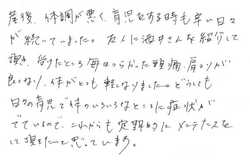 産後、体調が悪く、育児をする時も辛い日々
が続いていました。友人に酒井さんを紹介して
頂き、受けたところ毎日つらかった頭痛、肩コリが
良くなり、体がとても軽くなりました。どうしても
日々の育児で体のいろいろなところに症状が
でているので、これからも定期的にメンテナンスをし
て頂きたいと思っています。